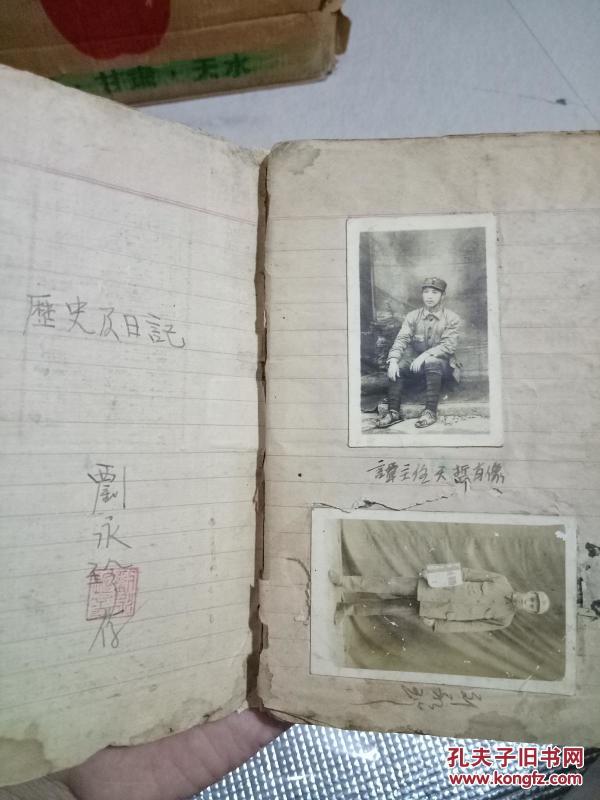 甘肃·天水
歷史及日記
劉永珍存
譚主任天哲肖像
孔夫子旧书网
www.kongfz.com